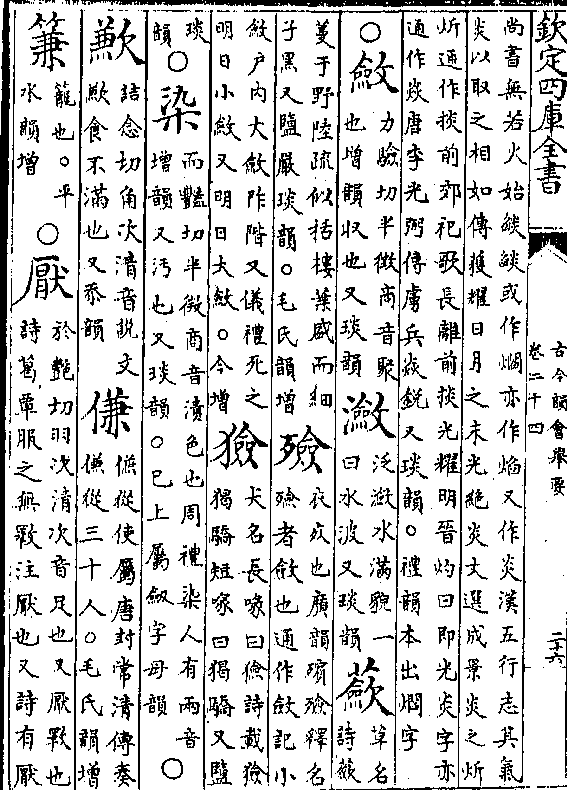 欽定四庫全書
古今韻會舉要
卷二十四
二十六
尚書無若火始燄燄或作爓亦作焰又作炎漢五行志其氣
炎以取之相如傳獲耀日月之末光絶炎文選成景炎之炘
炘通作掞前郊祀歌長離前掞光耀明晉灼曰即光炎字亦
通作焱唐李光弼傳虜兵焱銳又琰韻○禮韻本出爓字
○斂力驗切半徵商音聚也增韻收也又琰韻
瀲泛瀲水滿貌一曰水波又琰韻
蘞草名詩蘞
蔓于野陸疏似栝樓葉盛而細
子黑又鹽嚴琰韻○毛氏韻增
殮衣尸也廣韻殯殮釋名殮者斂也通作斂記小
斂户内大斂阼階又儀禮死之
明日小斂又明日大斂○今增
獫犬名長喙曰獫詩載獫猲驕短喙曰猲驕又鹽
琰韻
○染而豔切半徵商音漬色也周禮染人有兩音增韻又汚也又琰韻○已上屬劔字母韻
○
歉詰念切角次清音説文歉食不滿也又忝韻
傔傔從使屬唐封常清傳奏傔從三十人○毛氏韻增
𥳒籠也○平水韻增
○厭於豔切羽次清次音足也又厭斁也詩葛覃服之無斁注厭也又詩有厭